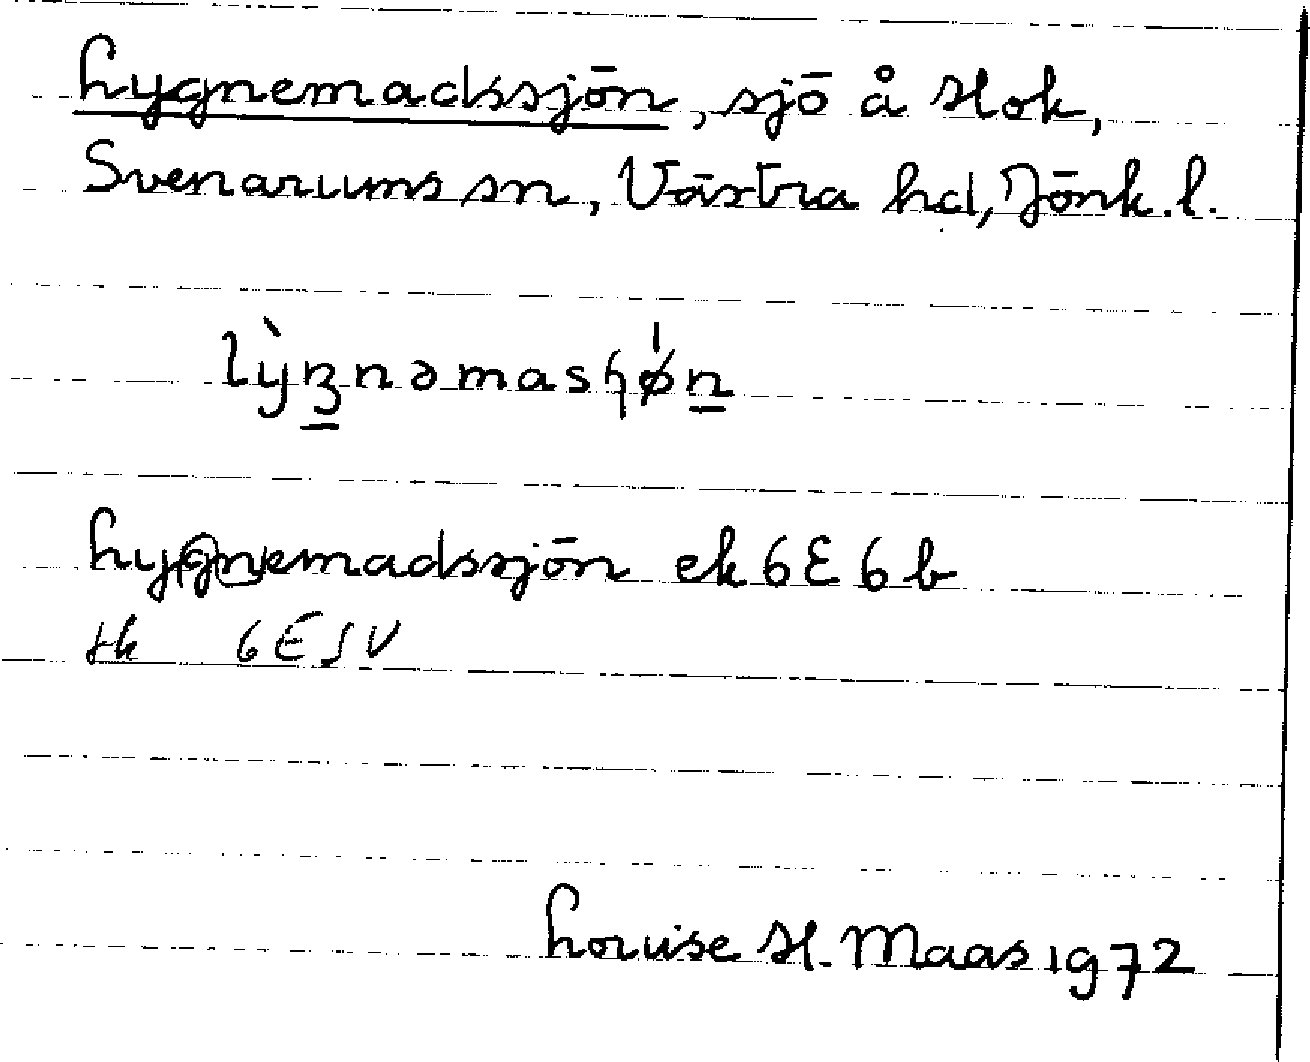 Lygnemadssjön, sjö å Hok,
Svenarums sn, Västra hd, Jönk. l.
lỳʒnəmasɧøn
Lygnemadssjön ek 6E 6b
tk 6E SV
Louise H. Maas 1972